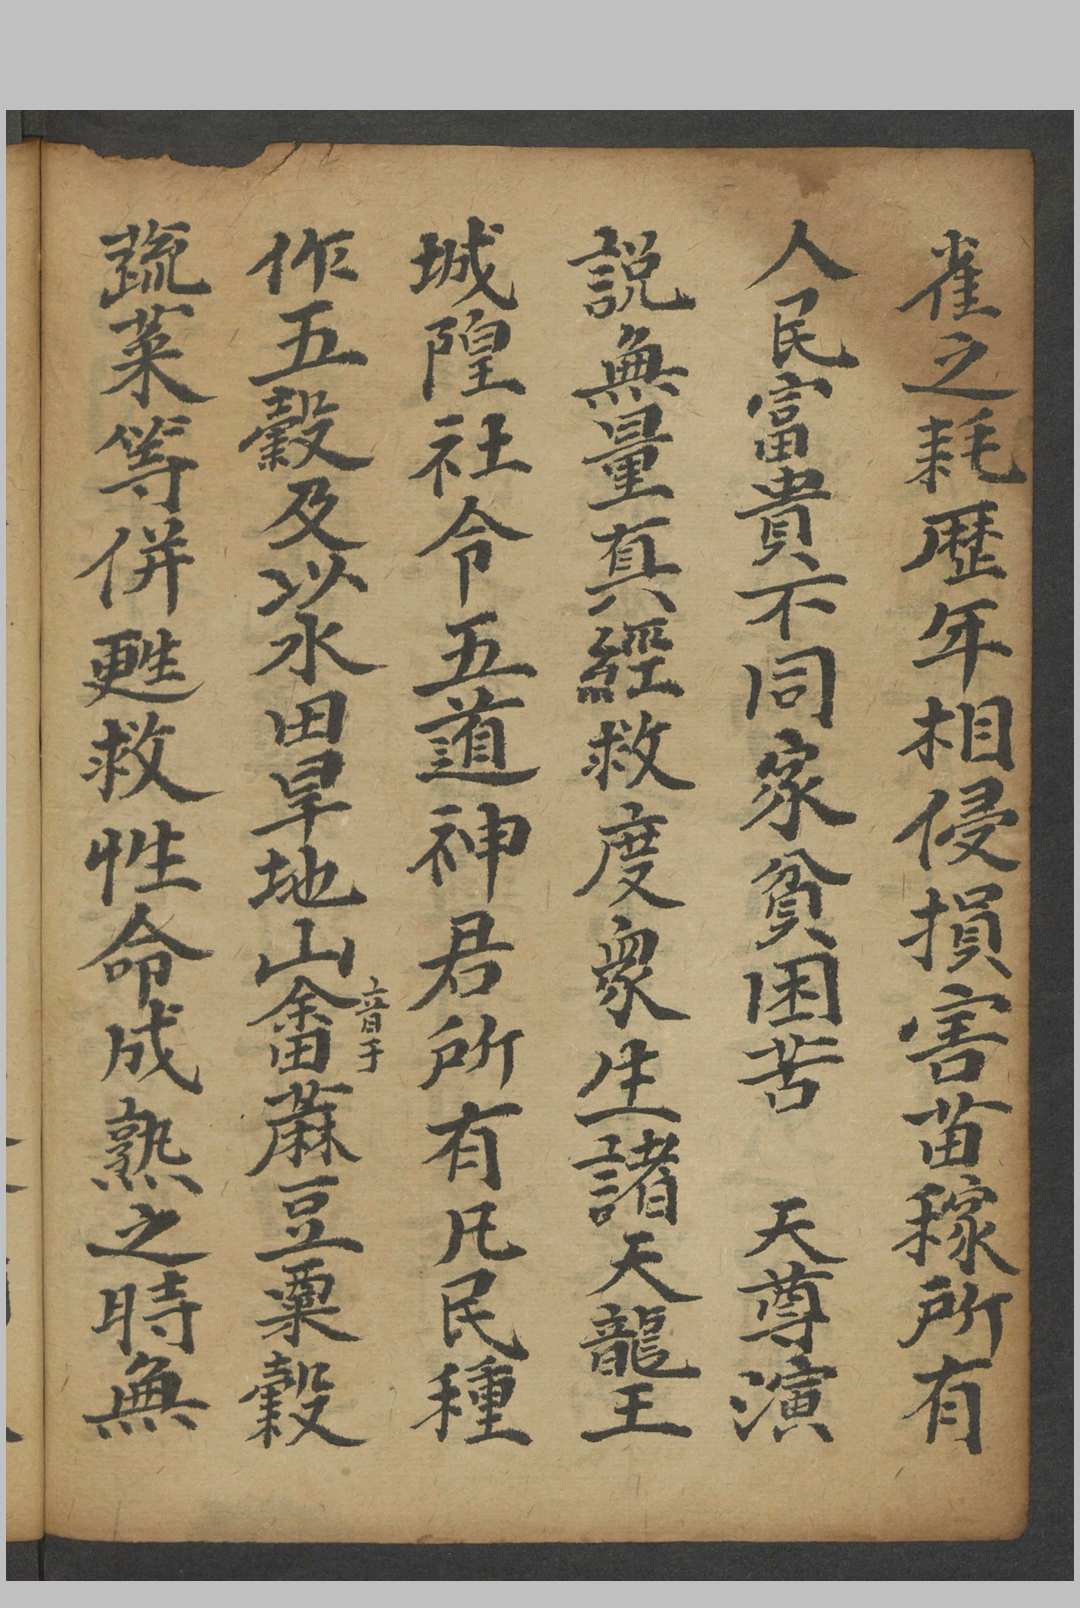 雀之耗歷年相侵損害苗稼所有
人民富貴不同家貧困苦 天尊演
説無量真經救度衆生諸天龍王
城隍社令五道神君所有凡民種
作五穀及以水田旱地山畬蔴豆粟穀
音于
蔬菜等併甦救性命成熟之時無